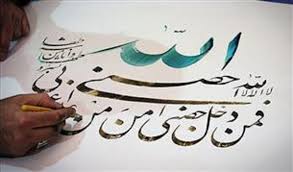 الله
لا اله الا الله حصنی
فمن دخل حصنی امن من عذابی